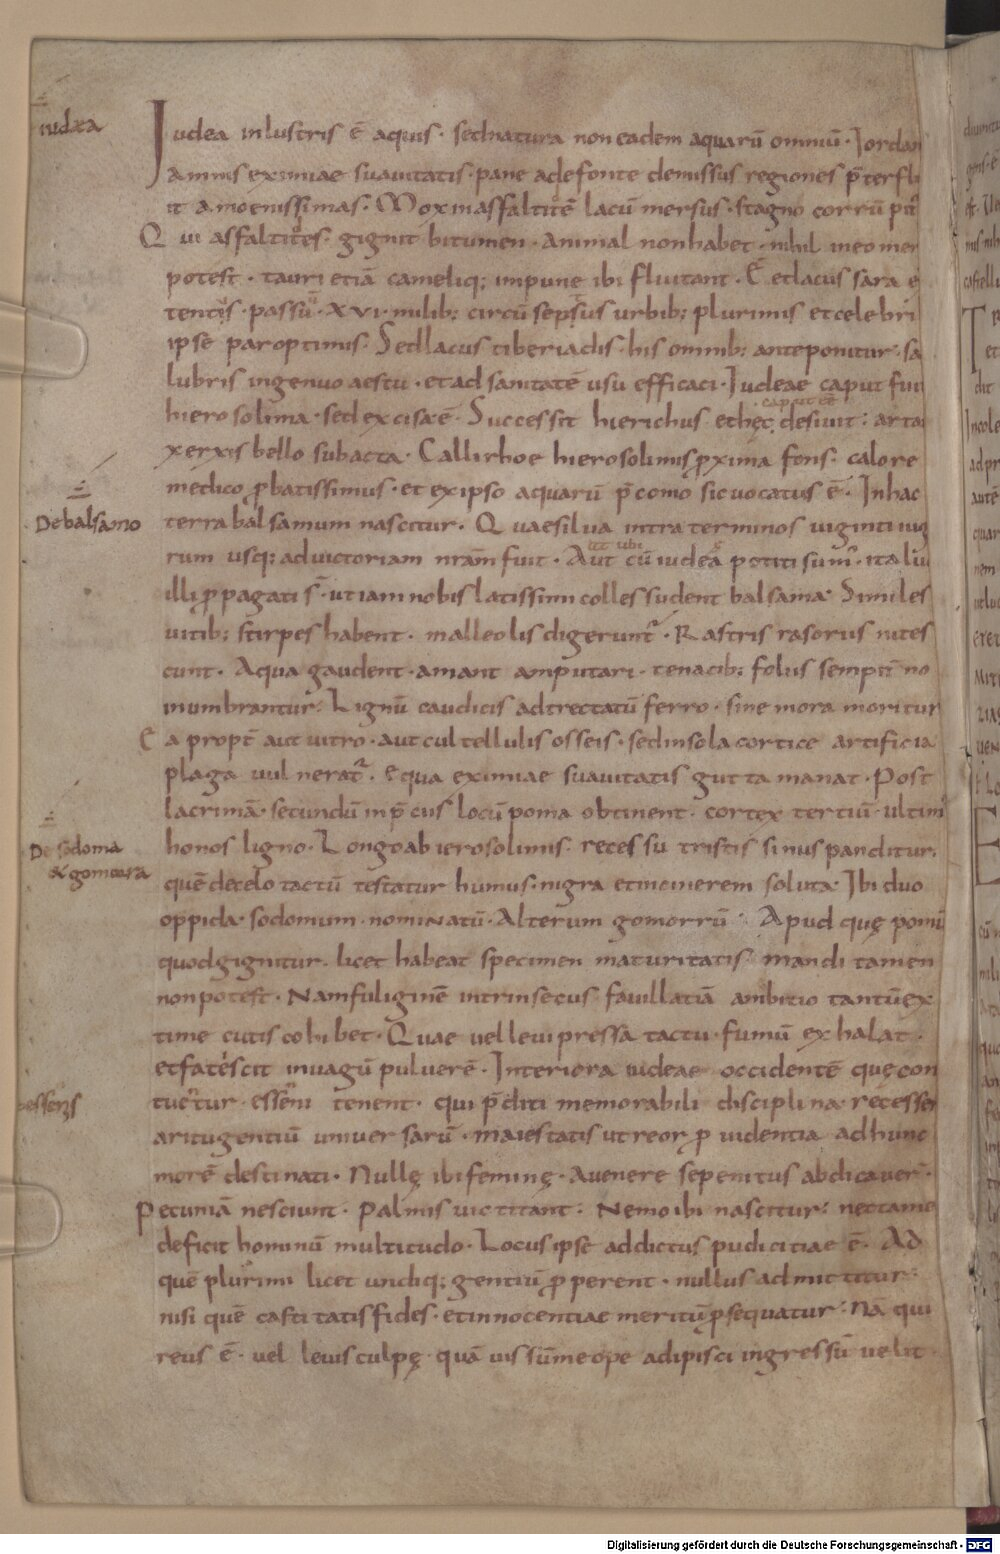 iudæa
Iudea inlustris ē aquis· sednatura non eadem aquarū omniū· Iordan
amnis eximiae suauitatis· pane adefonte demissus regiones p̄terflu
it amoenissimas· Mox in asfaltitē lacū mersus· stagno corrūpit̄
Qui asfaltites· gignit bitumen· animal non habet· nihil in eo mer
potest· tauri etiā cameliq; impune ibi fluitant· Ē et lacus sara e
tentis· passū· XVI· milib: circū sepsus urbib: plurimis et celebri
ipse par optimis· Sed lacus tiberiadis· his omnib: anteponitur· sa
lubris ingenuo aestu· et ad sanitatē usu efficaci· Iudeae caput fuit
caput eē
hierosolima· sed excisa ē· Successit hierichus et hęc desiuit: arta
xerxis bello subacta· Callirhoe hierosolimis ꝓxima fons· calore
medico ꝓbatissimus· et ex ipso aquarū p̄como sic uocatus ē· In hac
De balsamo
terra balsamum nascitur· Quae silua intra terminos uiginti iug
rum usq: ad uictoriam nr̄am fuit· Aut cū iudeā potiti sum̄· ita lu
ubi
illi ꝓpagati s̄· ut iam nobis latissimi colles sudent balsama· Similes
uitib: stirpes habent· malleolis digerunt̄· Rastris rasoriis nites
cunt· Aqua gaudent· amant amputari· tenacib: foliis semp̄ no
inumbrantur: Lignū caudicis adtrectatū ferro· sine mora moritur
Ea propt̄ aut uitro· aut cultellulis osseis· sed in sola cortice artificia
plaga uulnerat̄· e qua eximiae suauitatis gutta manat· Post
lacrimā· secundū in p̄ciis locū poma obtinent· cortex tertiū· ultim
De sodoma
& gomorra
honos ligno· Longo ab ierosolimis recessu tristis sinus panditur.
quē de celo tactū testatur humus· nigra et in cinerem soluta· Ibi duo
oppida· sodomum· nominatū· Alterum gomorrū· Apud quę pomū
quod gignitur· licet habeat specimen maturitatis mandi tamen
non potest· Nam fuliginē intrinsecus fauillatiā ambitio tantū ex
time cutis cohibet· Quae uel leui pressa tactu· fumū exhalat·
et fatescit in uagū puluerē· Interiora iudeae occidentē quę con
essenis
tuetur· esseni tenent· qui p̄diti memorabili disciplina· recesser
a ritu gentiū uniuersarū· maiestatis ut reor ꝓuidentia ad hunc
morē destinati· Nullę ibi feminę· a uenere se penitus abdicauer̄·
Pecuniā nesciunt· Palmis uictitant: Nemo ibi nascitur: nec tame
deficit hominū multitudo· Locus ipse addictus pudicitiae ē· Ad
quē plurimi licet undiq; gentiū ꝓperent· nullus admittitur:
nisi quē castitatis fides· et innocentiae meritū ꝓsequatur: Nā qui
reus ē· uel leuis culpę· quāuis sūme ope adipisci ingressū uelit·
Digitalisierung gefördert durch die Deutsche Forschungsgemeinschaft - DFG